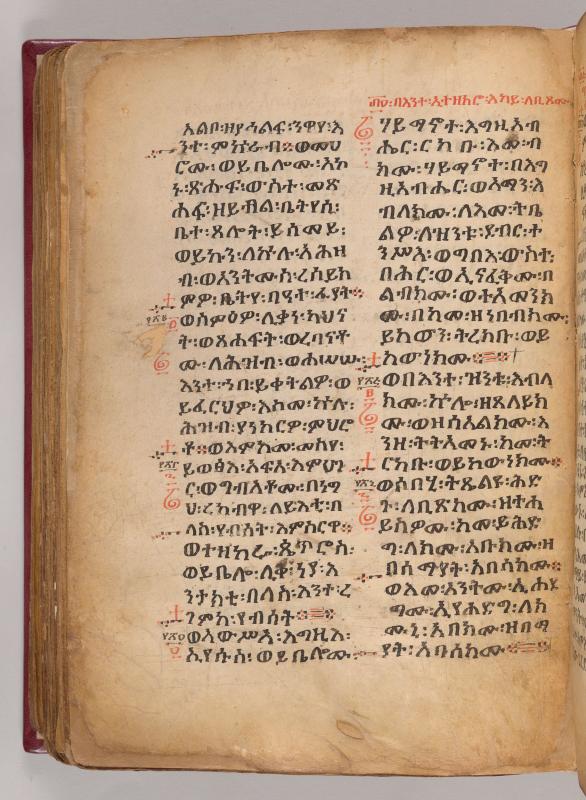 ፴፬፡በእንተ፡ኢተዘክሮ፡እከይ፡ለቢጾሙ
አልቦ፡ዘየኀልፍ፡ንዋየ፡እ
ንተ፡ምኵራብ። ወመሀ
ሮሙ፡ወይቤሎሙ፡አኮ
ኑ፡ጽሑፍ፡ውስተ፡መጽ
ሐፍ፡ዘይብል፡ቤትየሰ፡
ቤተ፡ጸሎት፡ይሰመይ፡
ወይኩን፡ለኵሉ፡አሕዛ
ብ፡ወአንትሙሰ፡ረሰይክ
ምዎ፡ቤትየ፡በዓተ፡ፈያት።
ወሰምዕዎ፡ሊቃነ፡ካህና
ት፡ወጸሐፍት፡ወረባናቶ
ሙ፡ለሕዝብ፡ወሐሠሡ፡
እንተ፡ኀበ፡ይቀትልዎ፡ወ
ይፈርህዎ፡እስመ፡ኵሉ፡
ሕዝብ፡ያነክርዎ፡ምህሮ
ቶ። ወእምከመ፡መስየ፡
ይወፅእ፡አፍአ፡እምሀገ
ር፡ወግብአቶሙ፡በነግ
ህ፡ረከብዋ፡ለይእቲ፡በ
ለስ፡የብሰት፡እምስርዋ።
ወተዘከረ፡ጴጥሮስ፡
ወይቤሎ፡ሊቅ፡ነያ፡እ
ንታክቲ፡በለስ፡እንተ፡ረ
ገምከ፡የብሰት።
ወአውሥአ፡እግዚእ፡
ኢየሱስ፡ወይቤሎሙ፡
ሃይማኖተ፡እግዚአብ
ሔር፡ርከቡ፡እመ፡ብ
ክሙ፡ሃይማኖተ፡በእግ
ዚአብሔር፡ወአማን፡እ
ብለክሙ፡ለእመ፡ትቤ
ልዎ፡ለዝንቱ፡ደብር፡ተ
ንሥእ፡ወግባእ፡ውስተ፡
ባሕር፡ወኢናፈቅሙ፡በ
ልብክሙ፡ወተአመንክ
ሙ፡በከመ፡ዘነበብክሙ፡
ይከውን፡ትረክቡ፡ወይ
ከውነክሙ።
ወበእንተ፡ዝንቱ፡እብለ
ክሙ፡ኵሎ፡ዘጸለይክ
ሙ፡ወዘሰአልክሙ፡እ
ንዘ፡ትትአመኑ፡ከመ፡ት
ርከቡ፡ወይከውነክሙ።
ወሶበሂ፡ትጼልዩ፡ሕድ
ጉ፡ለቢጽክሙ፡ዘተሐ
ይስዎሙ፡ከመ፡ይሕድ
ግ፡ለክሙ፡አቡክሙ፡ዘ
በሰማያት፡አበሳክሙ።
ወእመ፡አንትሙ፡ኢሐደ
ግሙ፡ኢየሐድግ፡ለክ
ሙኒ፡አቡክሙ፡ዘበሰማ
ያት፡አበሳክሙ።